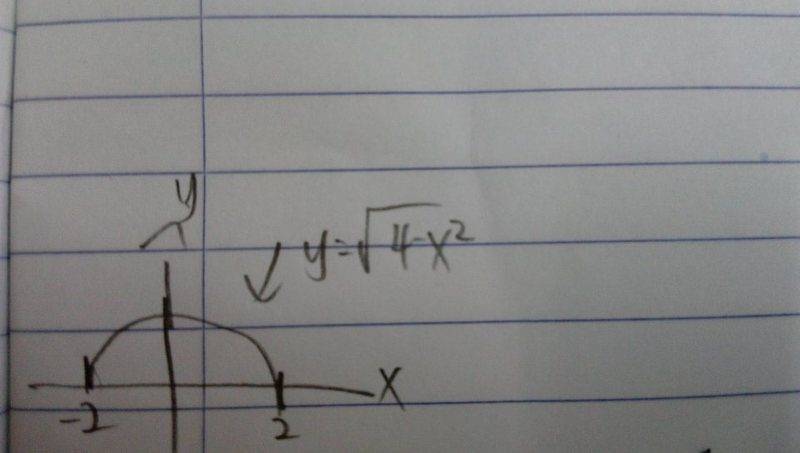 y
y=√4-x²
x
-2
2